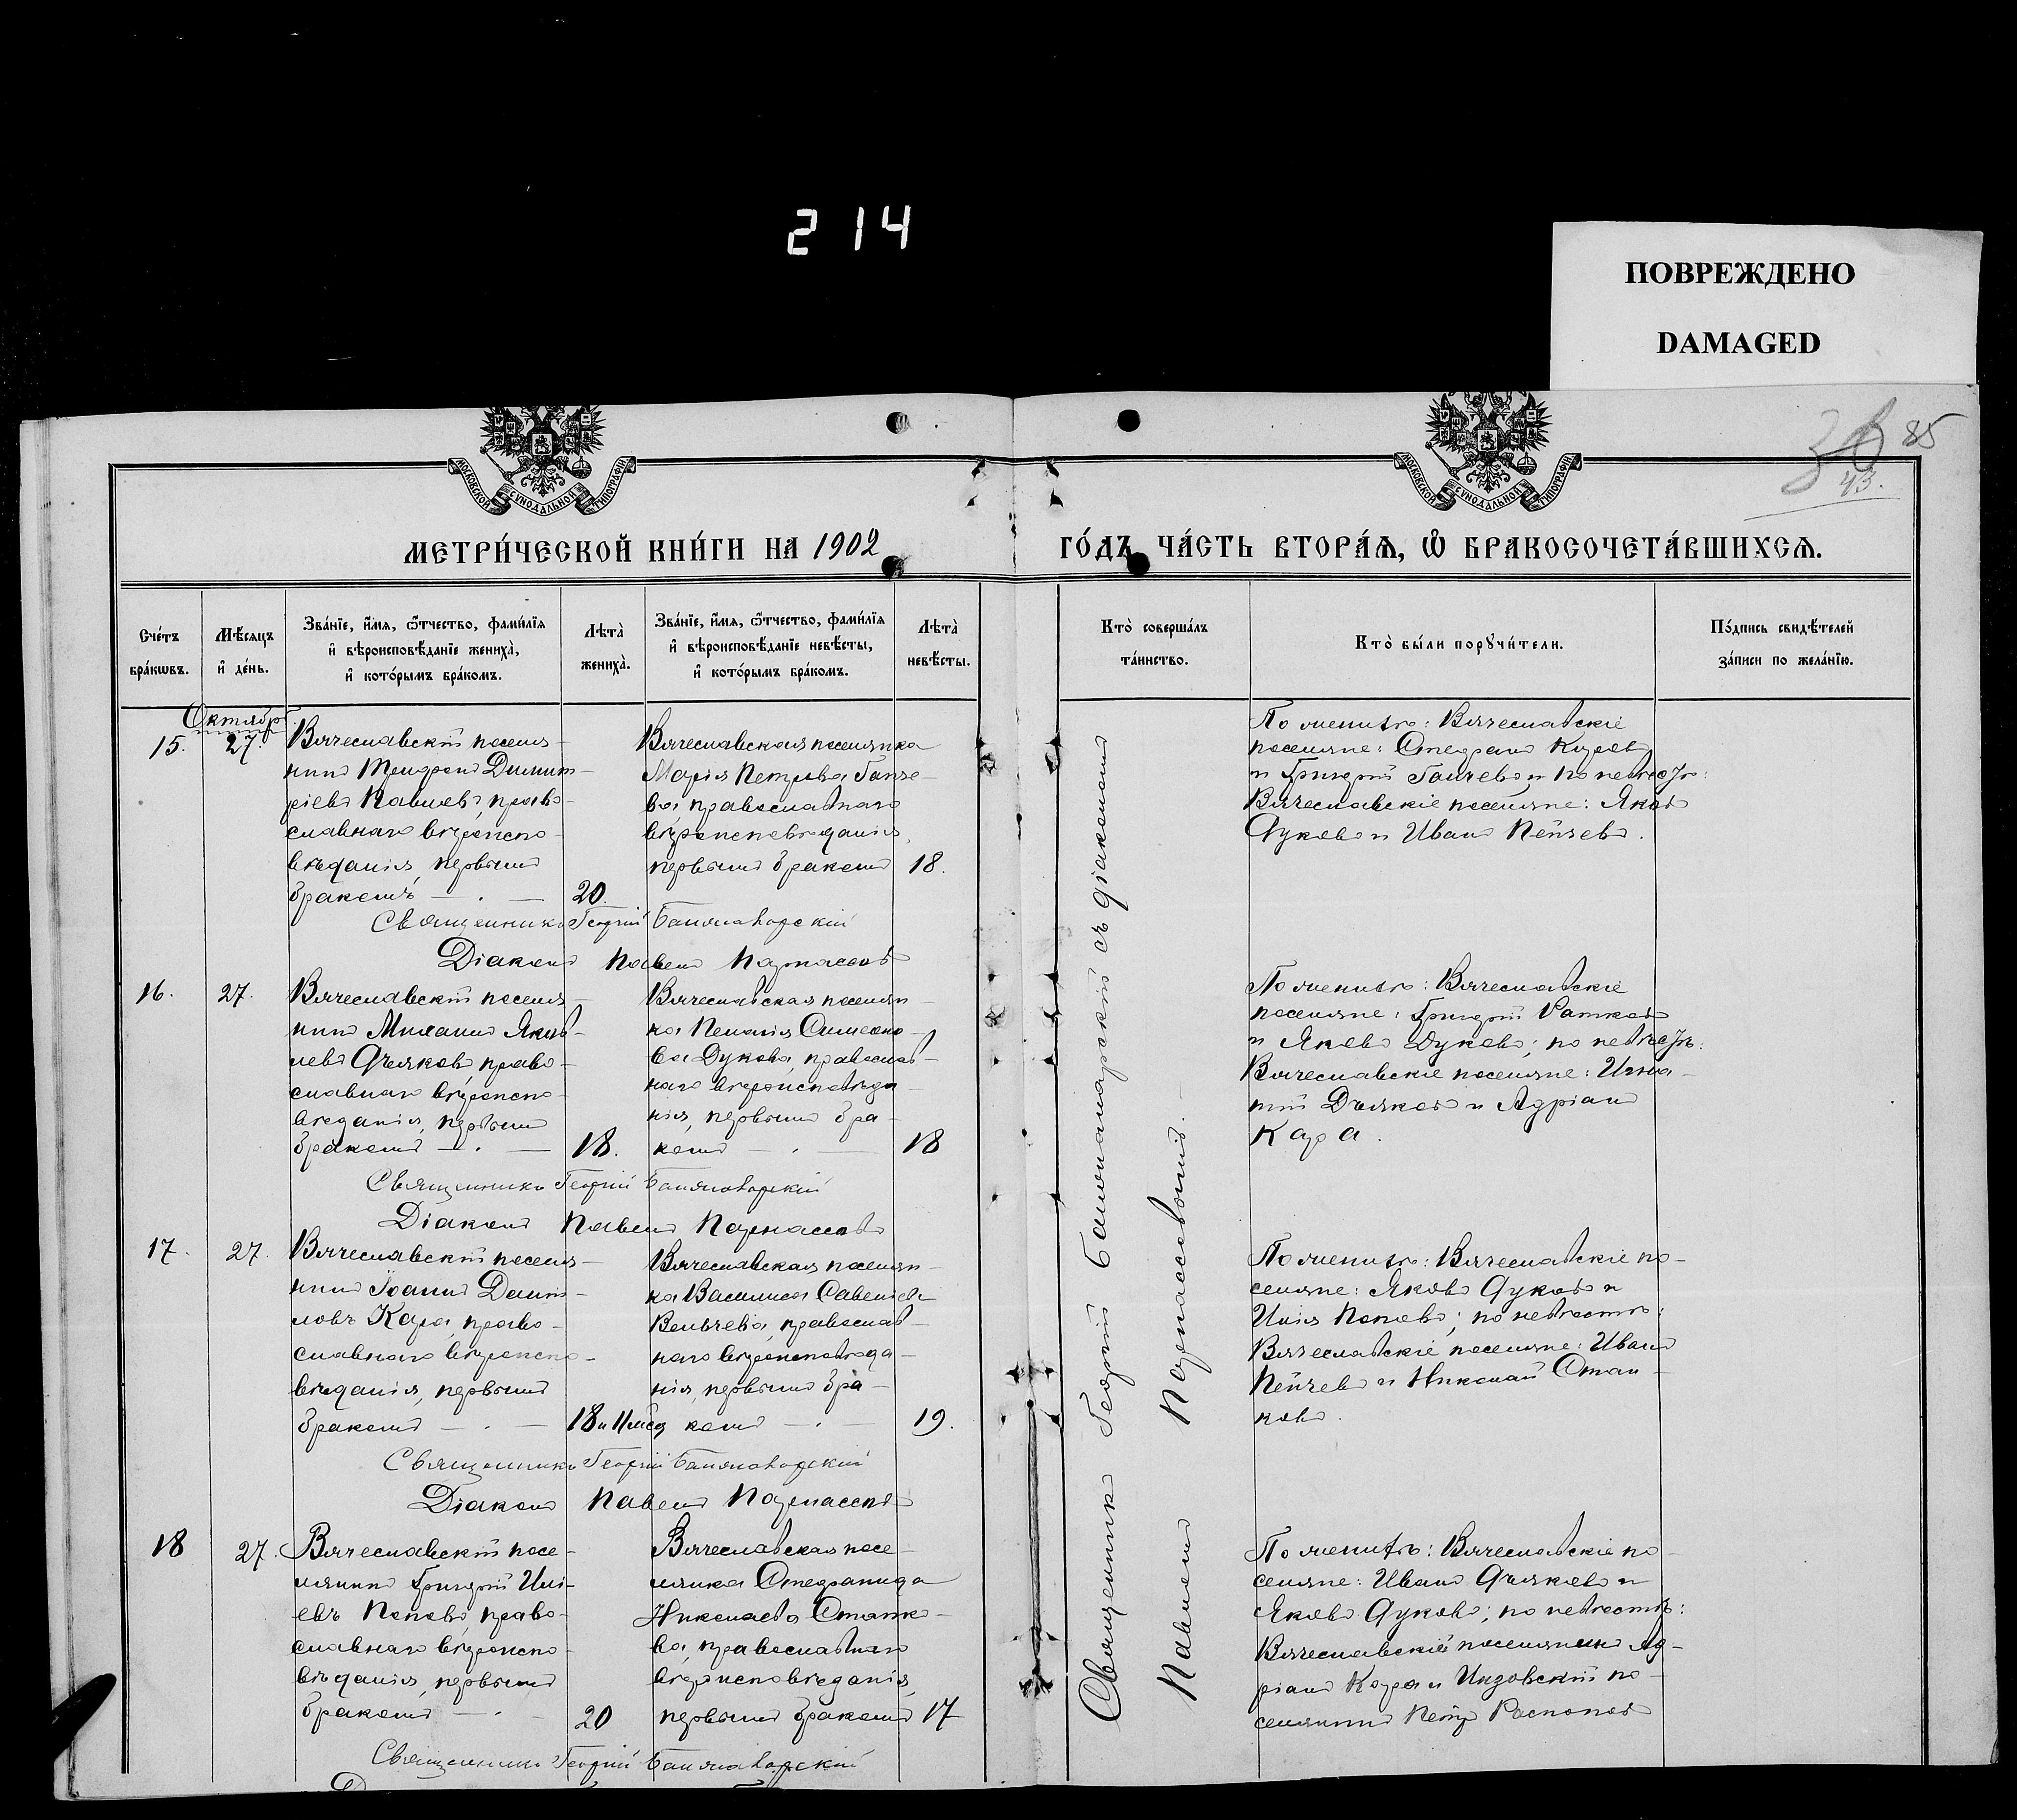 214
ПОВРЕЖДЕНО
DAMAGED
85
43.
МОСКОВСКОЙ СѴНОДАЛЬНОЙ ТИПОГРАФІИ
МОСКОВСКОЙ СѴНОДАЛЬНОЙ ТИПОГРАФІИ
МЕТРИ́ЧЕСКОЙ КНИ́ГИ НА 1902
ГО́ДЪ ЧА́СТЬ ВТОРА́Ѧ, Ѽ БРАКОСОЧЕТА́ВШИХСѦ.
Сче́тъ
бра́кѡвъ.
Мѣ́сяцъ
и҆ де́нь.
Зва́нїе, и҆́мя, ѻ҆́тчество, фами́лїя
и҆ вѣроисповѣ́данїе жениха̀,
и҆ кото́рымъ бра́комъ.
Лѣта̀
жениха̀.
Зва́нїе, и҆́мя, ѻ҆́тчество, фами́лїя
и҆ вѣроисповѣ́данїе невѣ́сты,
и҆ кото́рымъ бра́комъ.
Лѣта̀
невѣ́сты.
Кто̀ соверша́лъ
та́инство.
Кто̀ бы́ли порꙋчи́тели.
По́дпись свидѣ́телей
за́писи по жела́нїю.
Октябрь.
15.
27.
Вячеславскій поселя-
нинъ Трифонъ Димит-
ріевъ Павловъ, право-
славнаго вѣроиспо-
вѣданія, первымъ
бракомъ — . —
20.
Вячеславская поселянка
Марія Петрова Ганче-
ва, православнаго
вѣроисповѣданія,
первымъ бракомъ
18.
По женихѣ: Вячеславскіе
поселяне: Стефанъ Кировъ
и Григорій Ганчевъ; и по невѣстѣ:
Вячеславскіе поселяне: Яковъ
Дуковъ и Иванъ Пейчевъ.
Священникъ Георгій
Діаконъ Павелъ Парнассовъ
16.
27.
Вячеславскій поселя-
нинъ Михаилъ Яков-
левъ Дьяковъ, право-
славнаго вѣроиспо-
вѣданія, первымъ
бракомъ — . —
18.
Вячеславская поселян-
ка Пелагія Симеоно-
ва Дукова, православ-
наго вѣроисповѣда-
нія, первымъ бра-
комъ — . —
18
По женихѣ: Вячеславскіе
поселяне: Григорій Ратковъ
и Яковъ Дуковъ; по невѣстѣ:
Вячеславскіе поселяне: Игна-
тій Дьяковъ и Адріанъ
Кара.
Священникъ Георгій
Діаконъ Павелъ Парнассовъ
17.
27.
Вячеславскій поселя-
нинъ Іоаннъ Дани-
ловъ Кара, право-
славнаго вѣроиспо-
вѣданія, первымъ
бракомъ — . —
18 и 11 мѣс
Вячеславская поселян-
ка Василиса Савельева
Вельчева, православ-
наго вѣроисповѣда-
нія, первымъ бра-
комъ — . —
19.
По женихѣ: Вячеславскіе по-
селяне: Яковъ Дуковъ и
Илія Поповъ; по невѣстѣ:
Вячеславскіе поселяне: Иванъ
Пейчевъ и Николай Стан-
ковъ.
Священникъ Георгій
Діаконъ Павелъ Парнассовъ
18
27.
Вячеславскій посе-
лянинъ Григорій Илі-
евъ Поповъ, право-
славнаго вѣроиспо-
вѣданія, первымъ
бракомъ — . —
20
Вячеславская посе-
лянка Стефанида
Николаева Станко-
ва, православнаго
вѣроисповѣданія,
первымъ бракомъ
17
По женихѣ: Вячеславскіе по-
селяне: Иванъ Дьяковъ и
Яковъ Дуковъ; по невѣстѣ:
Вячеславскій поселянинъ Ад-
ріанъ Кара и Инзовскій по-
селянинъ Петръ Распоповъ
Священникъ Георгій
Священникъ Георгій съ діакономъ
Павломъ Парнассовымъ. —